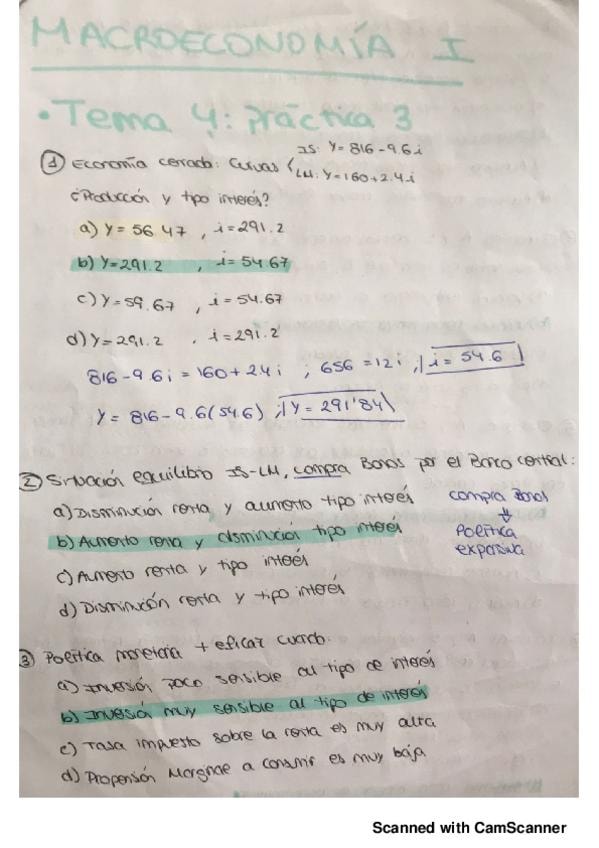 MACROECONOMÍA I
• Tema 4: práctica 3
① Economía cerrada: Curvas { IS: Y=816-9.6i
LM: Y=160+2.4i
¿Producción y tipo interés?
a) Y=56.47, i=291.2
b) Y=291.2, i=54.67
c) Y=59.67, i=54.67
d) Y=291.2, i=291.2
816-9.6i = 160+2.4i ; 656=12i ; i=54.6
Y = 816-9.6(54.6) ; Y=291'84
② Situación equilibrio IS-LM, compra Bonos por el Banco central:
a) Disminución renta y aumento tipo interés
b) Aumento renta y disminución tipo interés
c) Aumento renta y tipo interés
d) Disminución renta y tipo interés
compra Bonos
⇓
Política
expansiva
③ Política monetaria + eficaz cuando:
a) Inversión poco sensible al tipo de interés
b) Inversión muy sensible al tipo de interés
c) Tasa impuesto sobre la renta es muy alta
d) Propensión Marginal a consumir es muy baja
Scanned with CamScanner